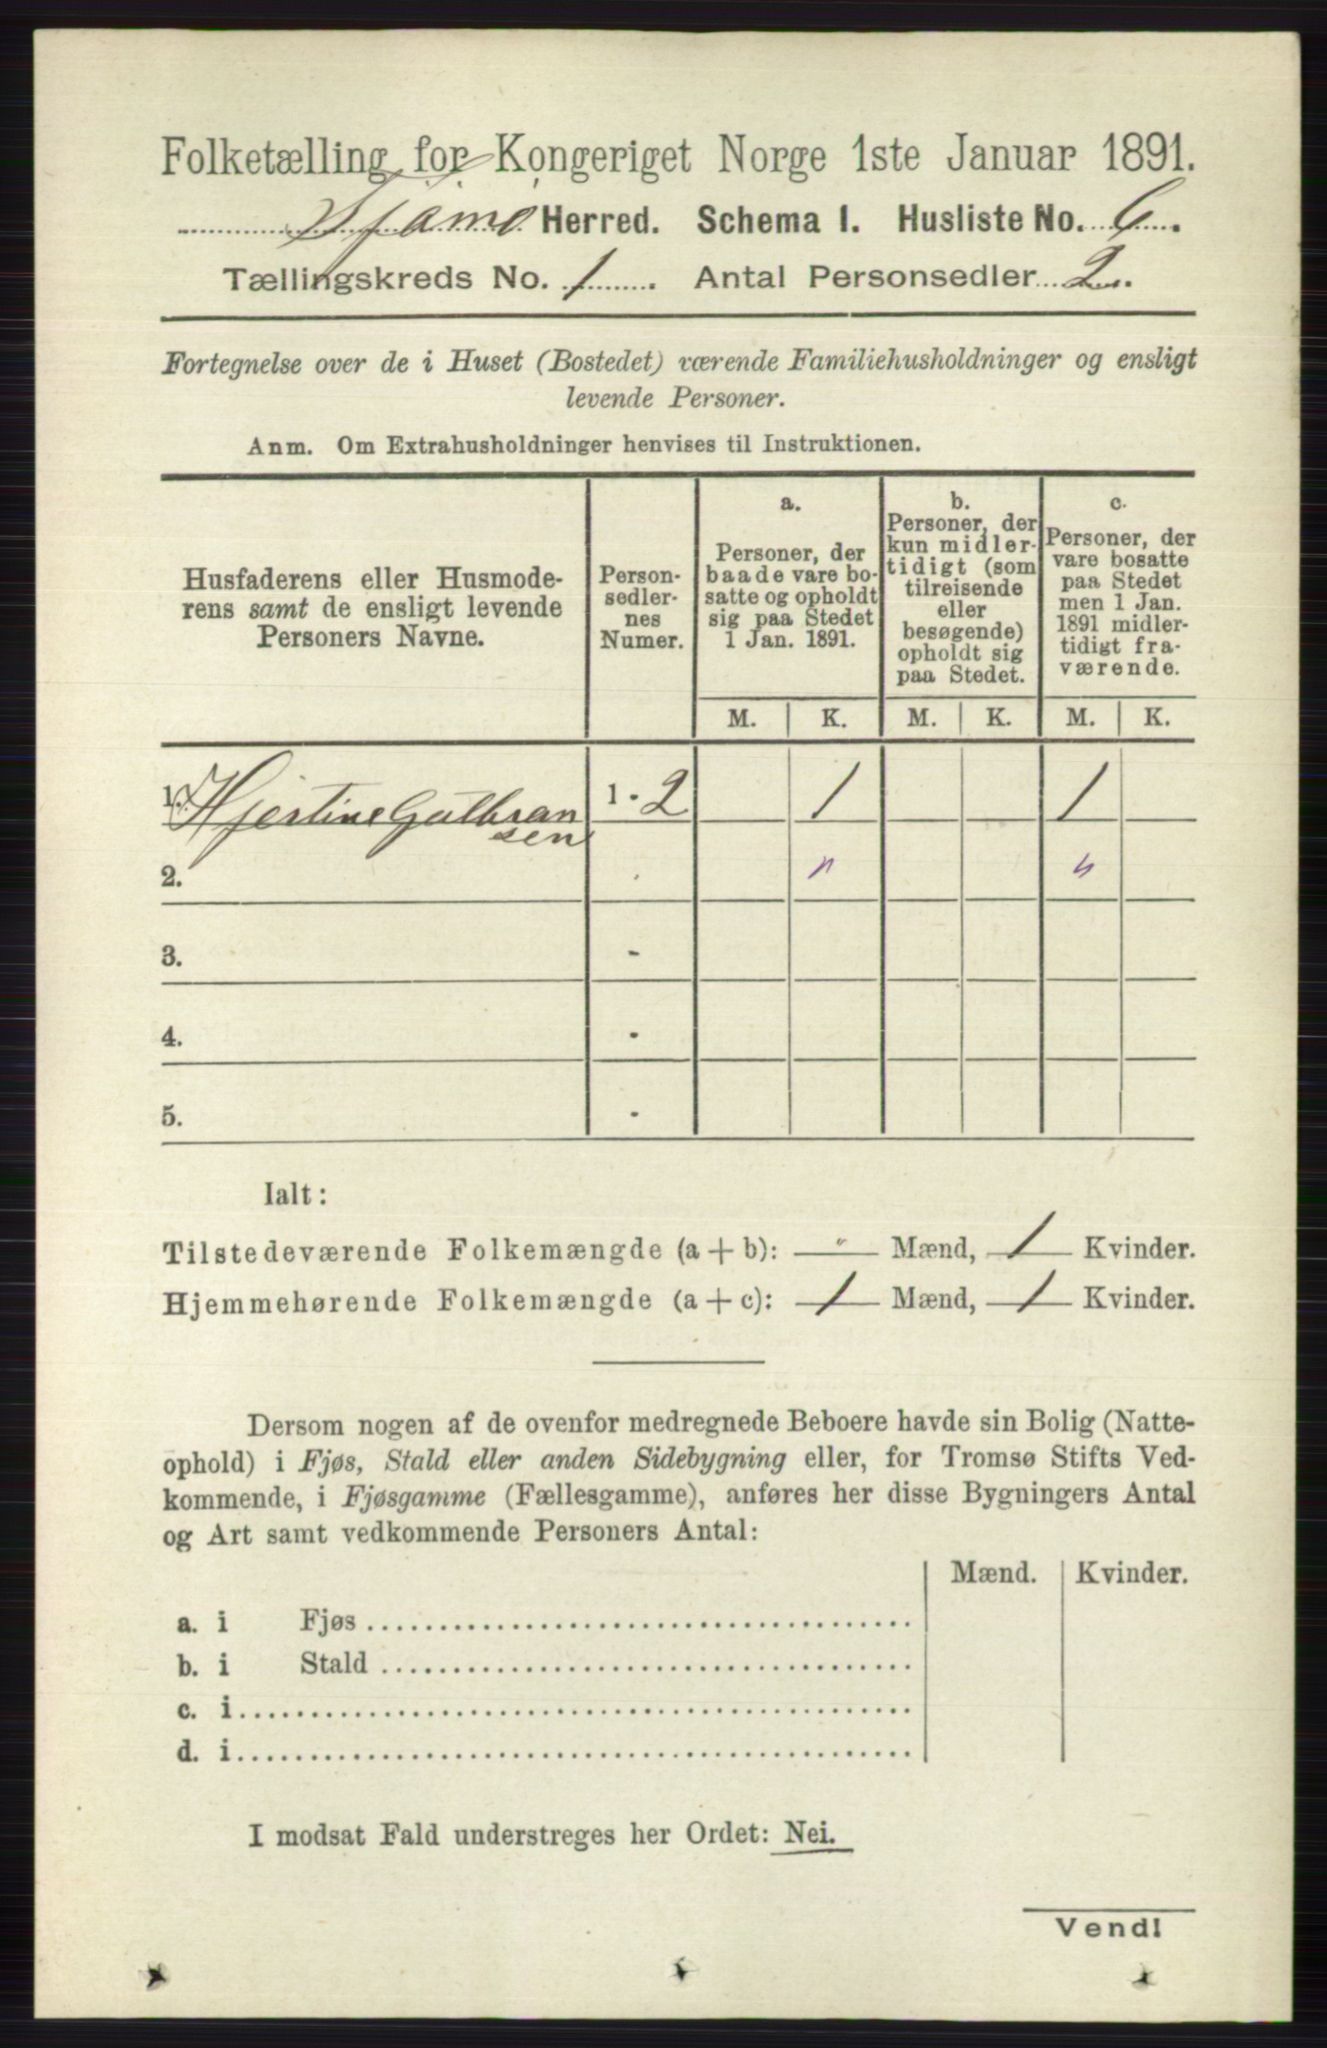 Folketælling for Kongeriget Norge 1ste Januar 1891.
Tjømø Herred. Schema I. Husliste No. 6.
Tællingskreds No. 1. Antal Personsedler 2.
Fortegnelse over de i Huset (Bostedet) værende Familiehusholdninger og ensligt
levende Personer.
Anm. Om Extrahusholdninger henvises til Instruktionen.
Husfaderens eller Husmode-
rens samt de ensligt levende
Personers Navne.
Person-
sedler-
nes
Numer.
a.
Personer, der
baade vare bo-
satte og opholdt
sig paa Stedet
1 Jan. 1891.
b.
Personer, der
kun midler-
tidigt (som
tilreisende
eller
besøgende)
opholdt sig
paa Stedet.
c.
Personer, der
vare bosatte
paa Stedet
men 1 Jan.
1891 midler-
tidigt fra-
værende.
M. K. M. K. M. K.
1. Hjertine Gulbran 1 - 2 1 1
sen
2. - " "
3. -
4. -
5. -
Ialt:
Tilstedeværende Folkemængde (a + b): " Mænd, 1 Kvinder.
Hjemmehørende Folkemængde (a + c): 1 Mænd, 1 Kvinder.
Dersom nogen af de ovenfor medregnede Beboere havde sin Bolig (Natte-
ophold) i Fjøs, Stald eller anden Sidebygning eller, for Tromsø Stifts Ved-
kommende, i Fjøsgamme (Fællesgamme), anføres her disse Bygningers Antal
og Art samt vedkommende Personers Antal:
Mænd. Kvinder.
a. i Fjøs
b. i Stald
c. i
d. i
I modsat Fald understreges her Ordet: Nei.
Vend!